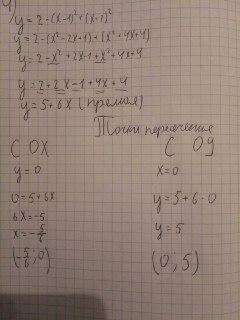 4)
y = 2-(x-1)²+(x+1)²
y = 2-(x²-2x+1)+(x²+4x+4)
y = 2-x²+2x-1+x²+4x+4
y = 2+2x-1+4x+4
y = 5+6x (прямая)
Точки пересечения
С OX
y = 0
0 = 5+6x
6x = -5
x = -5/6
(-5/6; 0)
С Oy
x = 0
y = 5+6·0
y = 5
(0, 5)